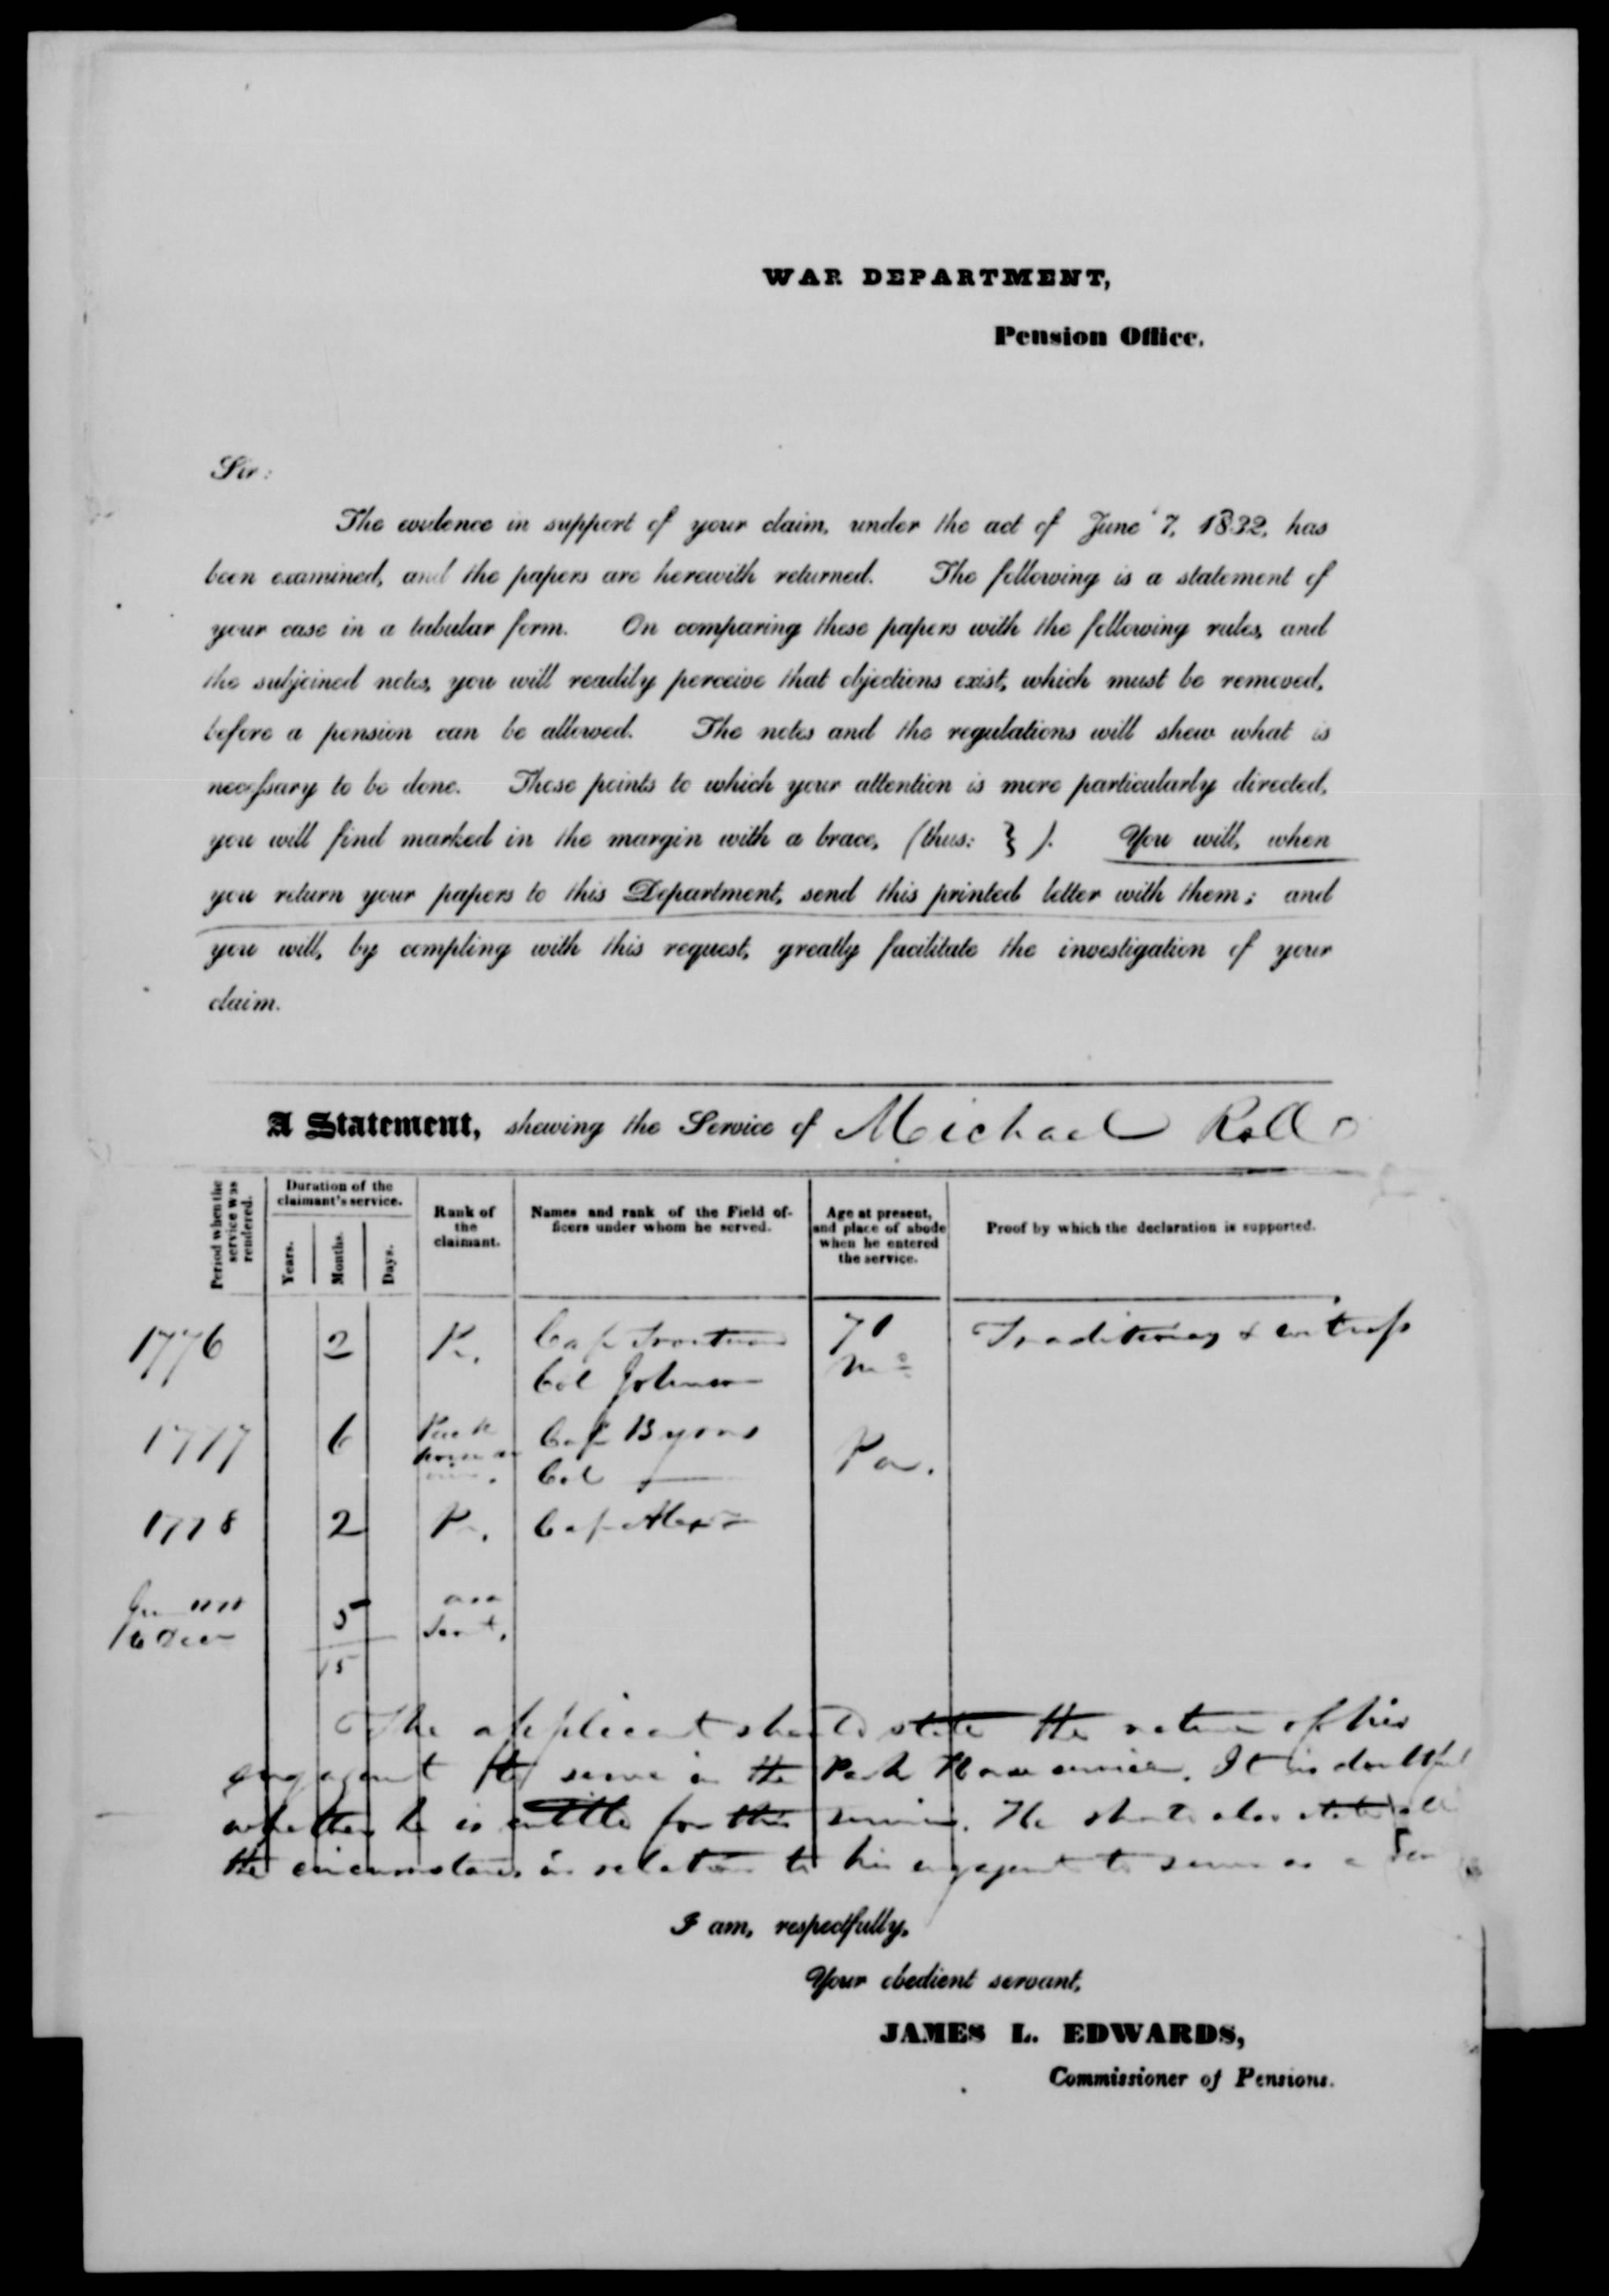 WAR DEPARTMENT,
Pension Office.
Sir:
The evidence in support of your claim, under the act of June 7, 1832, has
been examined, and the papers are herewith returned. The following is a statement of
your case in a tabular form. On comparing these papers with the following rules, and
the subjoined notes, you will readily perceive that objections exist, which must be removed,
before a pension can be allowed. The notes and the regulations will shew what is
necessary to be done. Those points to which your attention is more particularly directed,
you will find marked in the margin with a brace, (thus: } ). You will, when
you return your papers to this Department, send this printed letter with them; and
you will, by compling with this request, greatly facilitate the investigation of your
claim.
A Statement, shewing the Service of Michael Roll
Period when the service was rendered.
Duration of the claimant's service.
Years.
Months.
Days.
Rank of the claimant.
Names and rank of the Field officers under whom he served.
Age at present, and place of abode when he entered the service.
Proof by which the declaration is supported.
1776 2 P. Cap Troutman 71 Traditionary &
Col Johnson
1777 6 Pack Cap Byons Pa.
horse Col —
1778 2 P. Cap Alexr
5
15
The applicant should state the nature of his
engagement to serve in the Pack Horse service. It is doubtful
whether he is entitled for this service. He should also state all
the circumstances in relation to his engagement to serve as a
I am, respectfully,
Your obedient servant,
JAMES L. EDWARDS,
Commissioner of Pensions.